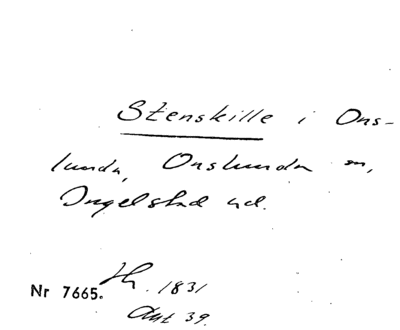 Stenskille i Ons-
lunda, Onslunda sn,
Ingelstad hd.
Nr 7665. 1831
Akt 39.